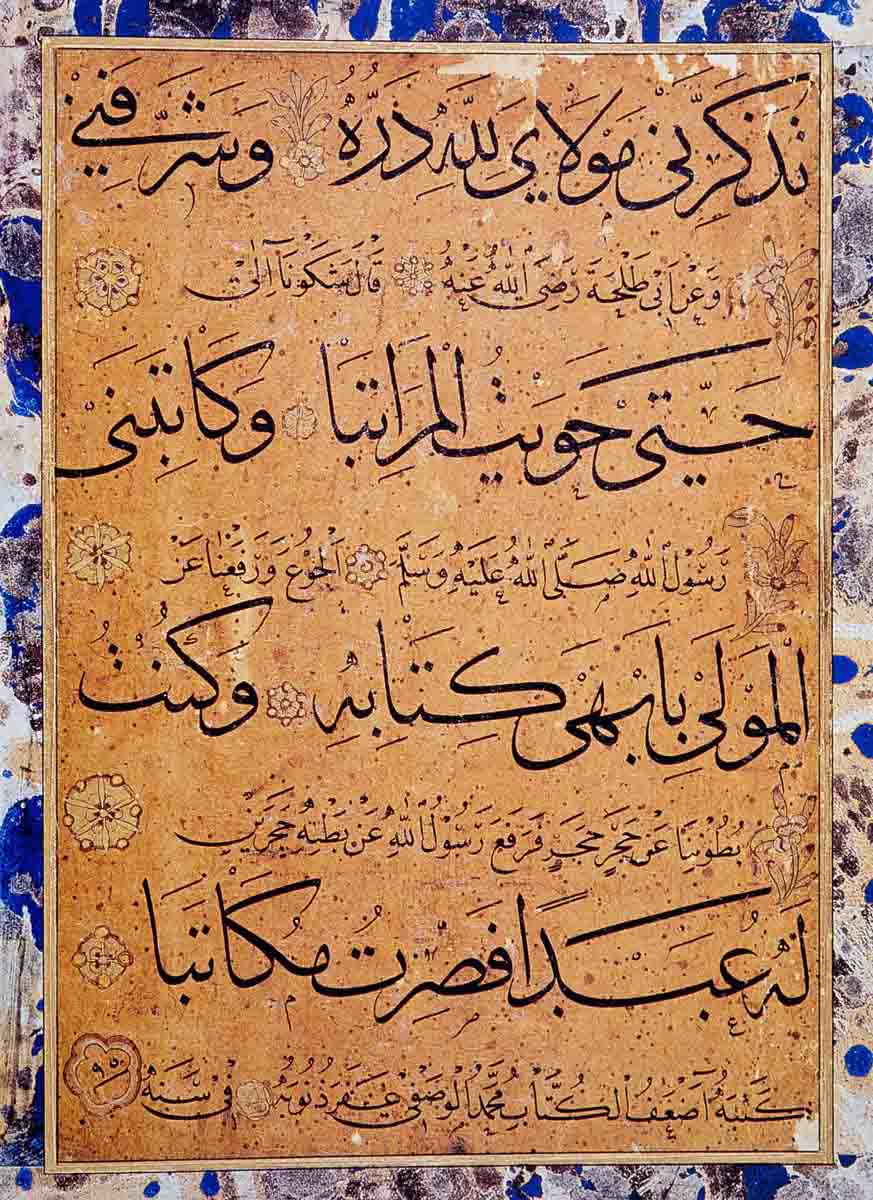 تَذَكَّرَنِي مَوْلَايَ لِلّٰهِ دَرُّهُ وَشَرَّفَنِي
وَعَنْ اَبِي طَلْحَةَ رَضِيَ اللّٰهُ عَنْهُ قَالَ شَكَوْنَا اِلٰى
حَتّٰى حَوَيْتُ الْمَرَاتِبَا وَكَاتَبَنِي
رَسُولِ اللّٰهِ صَلَّى اللّٰهُ عَلَيْهِ وَسَلَّمَ اَلْجُوعَ وَرَفَعْنَا عَنْ
الْمَوْلٰى بِاَبْهٰى كِتَابِهِ وَكُنْتُ
بُطُونِنَا عَنْ حَجَرٍ حَجَرٍ فَرَفَعَ رَسُولُ اللّٰهِ عَنْ بَطْنِهِ حَجَرَيْنِ
لَهُ عَبْدًا فَصِرْتُ مُكَاتَبَا
كَتَبَهُ اَضْعَفُ الْكُتَّابِ مُحَمَّدُ الْوَصْفِي غُفِرَ ذُنُوبُهُ فِي سَنَة